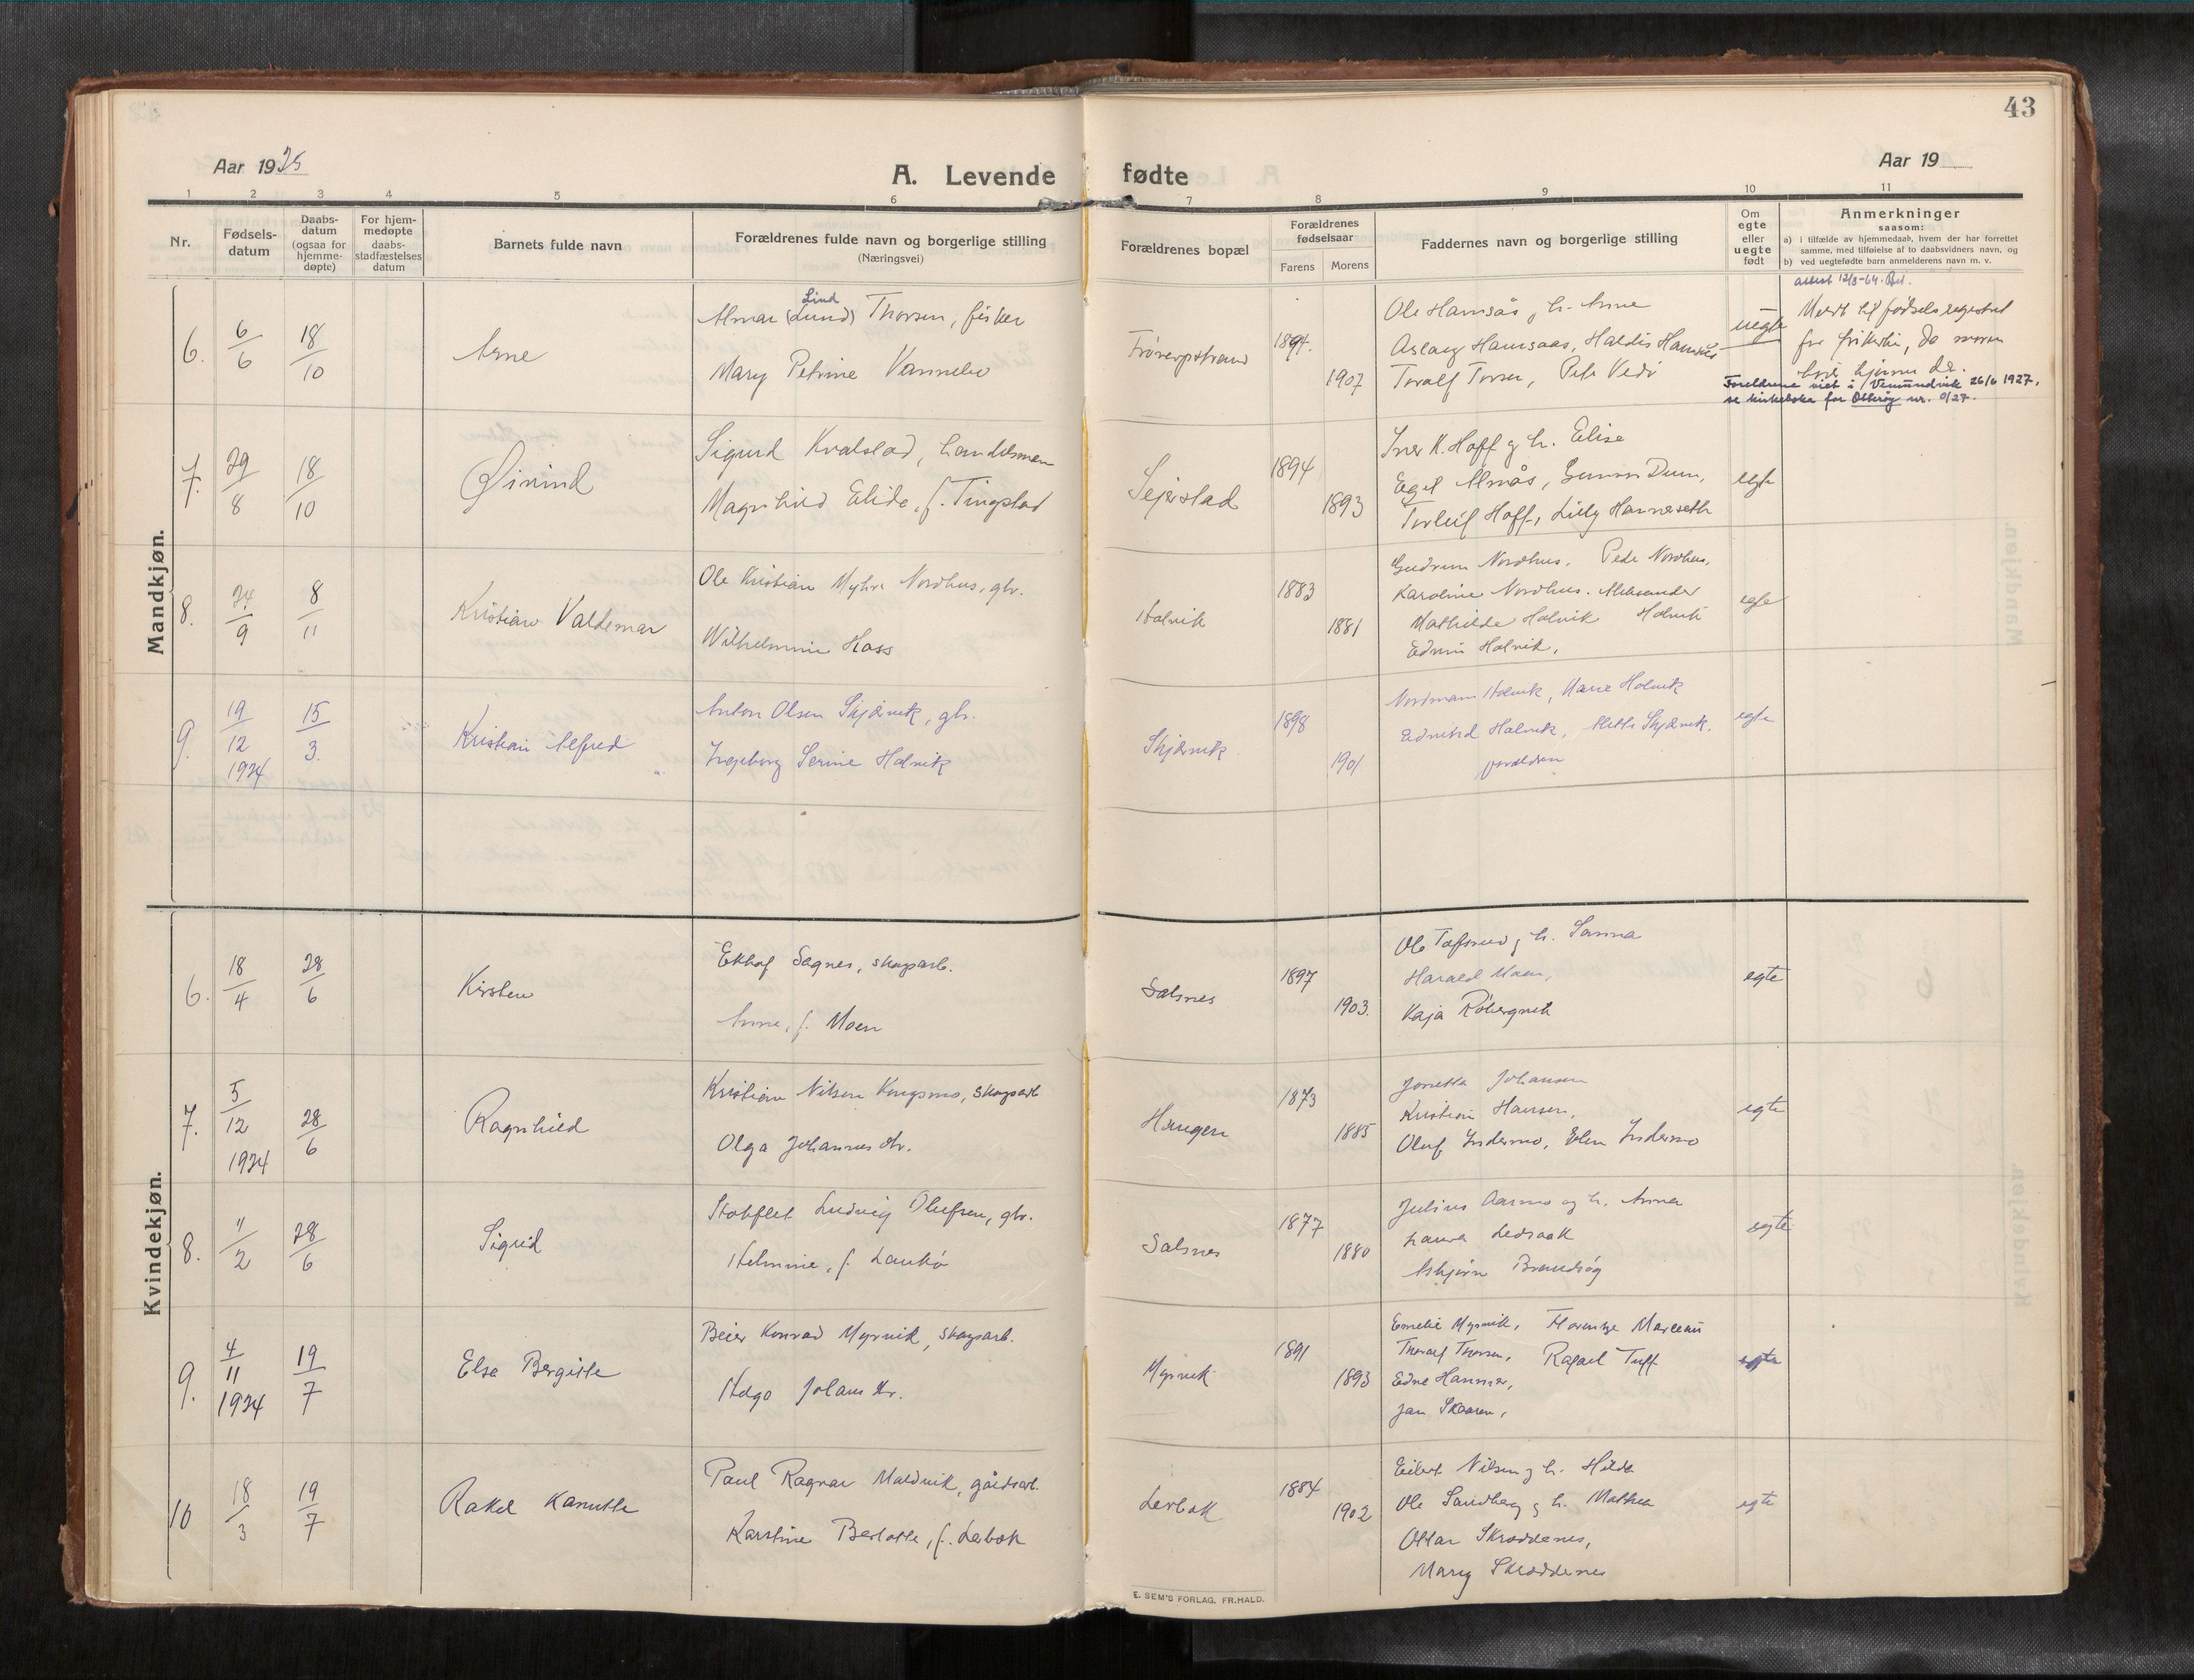 43
Aar 1925
A. Levende fødte
Aar 19
1 2 3 4 5 6 7 8 9 10 11
Nr.
Fødsels-
datum
Daabs-
datum
(ogsaa for
hjemme-
døpte)
For hjem-
medøpte
daabs-
stadfæstelses
datum
Barnets fulde navn
Forældrenes fulde navn og borgerlige stilling
(Næringsvei)
Forældrenes bopæl
Forældrenes
fødselsaar
Farens Morens
Faddernes navn og borgerlige stilling
Om
egte
eller
uegte
født
Anmerkninger
saasom:
a) i tilfælde av hjemmedaab, hvem der har forrettet
samme, med tilføielse af to daabsvidners navn, og
b) ved uegtefødte barn anmelderens navn m. v.
Mandkjøn.
6. 6/6 18/10 Arne
Lind
Almar (Lund) Thorsen, fisker
Mary Petrine Vannebo
1894.
1907
Ole Hamsås, h. Anne
Aslaug Hamsaas, Haldis Hamsås
Toralf Torsen,
uegte
attest 12/8-64.
Meldt til fødselsregistret
Foreldrene viet i Vemundvik 26/6 1927.
se kirkeboka for Otterøy nr. 0/27.
7. 29/8 18/10 Øivind
Sigurd Kvalstad, handelsmann
Magnhild Elida, f. Tingstad
Sejerstad
1894
1893
Iver K. Hoff g h. Elise
Egil Almås, Gunnar Duun,
Torleif Hoff, Lilly Hanneseth
egte
8. 24/9 8/11 Kristian Valdemar
Ole Kristian Myhre Nordhus, gbr.
Wilhelmine Hass
Holvik
1883
1881
Gudrun Nordhus, Peder Nordhus,
Karoline Nordhus. Aleksander
Mathilde Holvik Holvik
Edvin Holvik,
egte
9. 19/12 1924 15/3. Kristian Alfred
Anton Olsen Skjærvik, gbr.
Ingeborg Serine Holvik
Skjærvik
1898
1901
Nordmann Holvik, Marie Holvik
Holvik, Skjærvik,
foreldren
egte
Kvindekjøn.
6. 18/4 28/6 Kirsten
Sagnes, skogsarb.
Anne, f. Moen
Salsnes
1897
1903.
Harald Moen,
Kaja
egte
7. 5/12 1924 28/6 Ragnhild
Kristian Nilsen Kongsmo, skogsarb
Olga Johannesdtr.
Haugen
1873
1885
Jonetta Johansen
Kristian Hansen,
Oluf Indermo, Elen Indermo
egte
8. 11/2 28/6 Sigrid
Stokflet Ludvig Olufsen, gbr.
Helmine, f. Lankø
Salsnes
1877
1880
Julius Aarmo og h. Anna
Laura Ledsaak
Asbjørn Brandsøy
egte
9. 4/11 1924 19/7 Elsa Bergitte
Beier Konrad Myrvik, skogsarb.
Myrvik
1891
1893
Emelie Myrvik,
Thoralf Thorsen, Rafael Tuff
Edne Hammer,
Jan Skaaren,
egte
10 18/3 19/7 Rakel Kanutte
Paul Ragnar Maldvik, gårdsarb.
Karstine Berlotte, f. Lerbak
Lerbak
1884
1902
Eilert Nilsen g h. Hilda
Ole Sandberg g h. Mathea
Ottar Skroddenes,
Mary Skroddenes
egte
E. SEM'S FORLAG, FR.HALD.